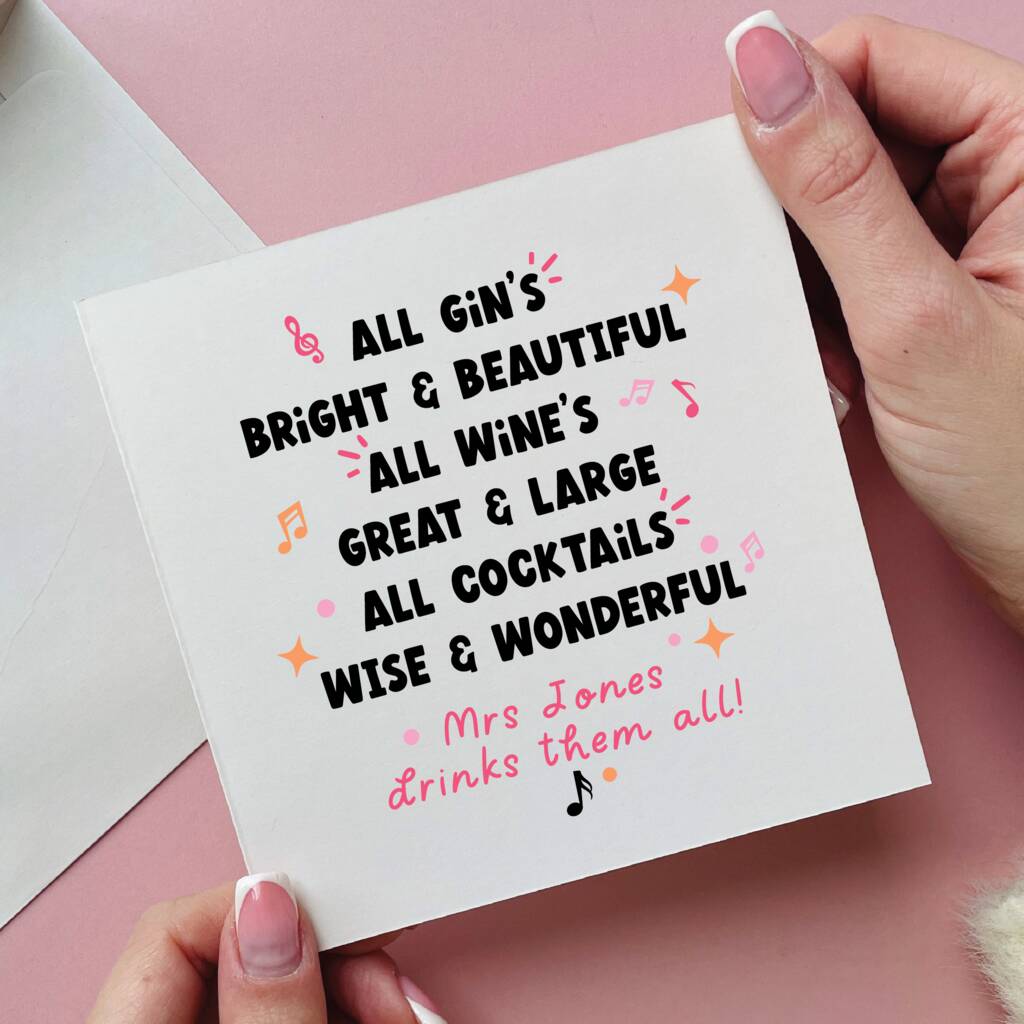 ALL GiN'S
BRiGHT & BEAUTIFUL
ALL WiNE'S
GREAT & LARGE
ALL COCKTAiLS
WISE & WONDERFUL
Mrs Jones
drinks them all!